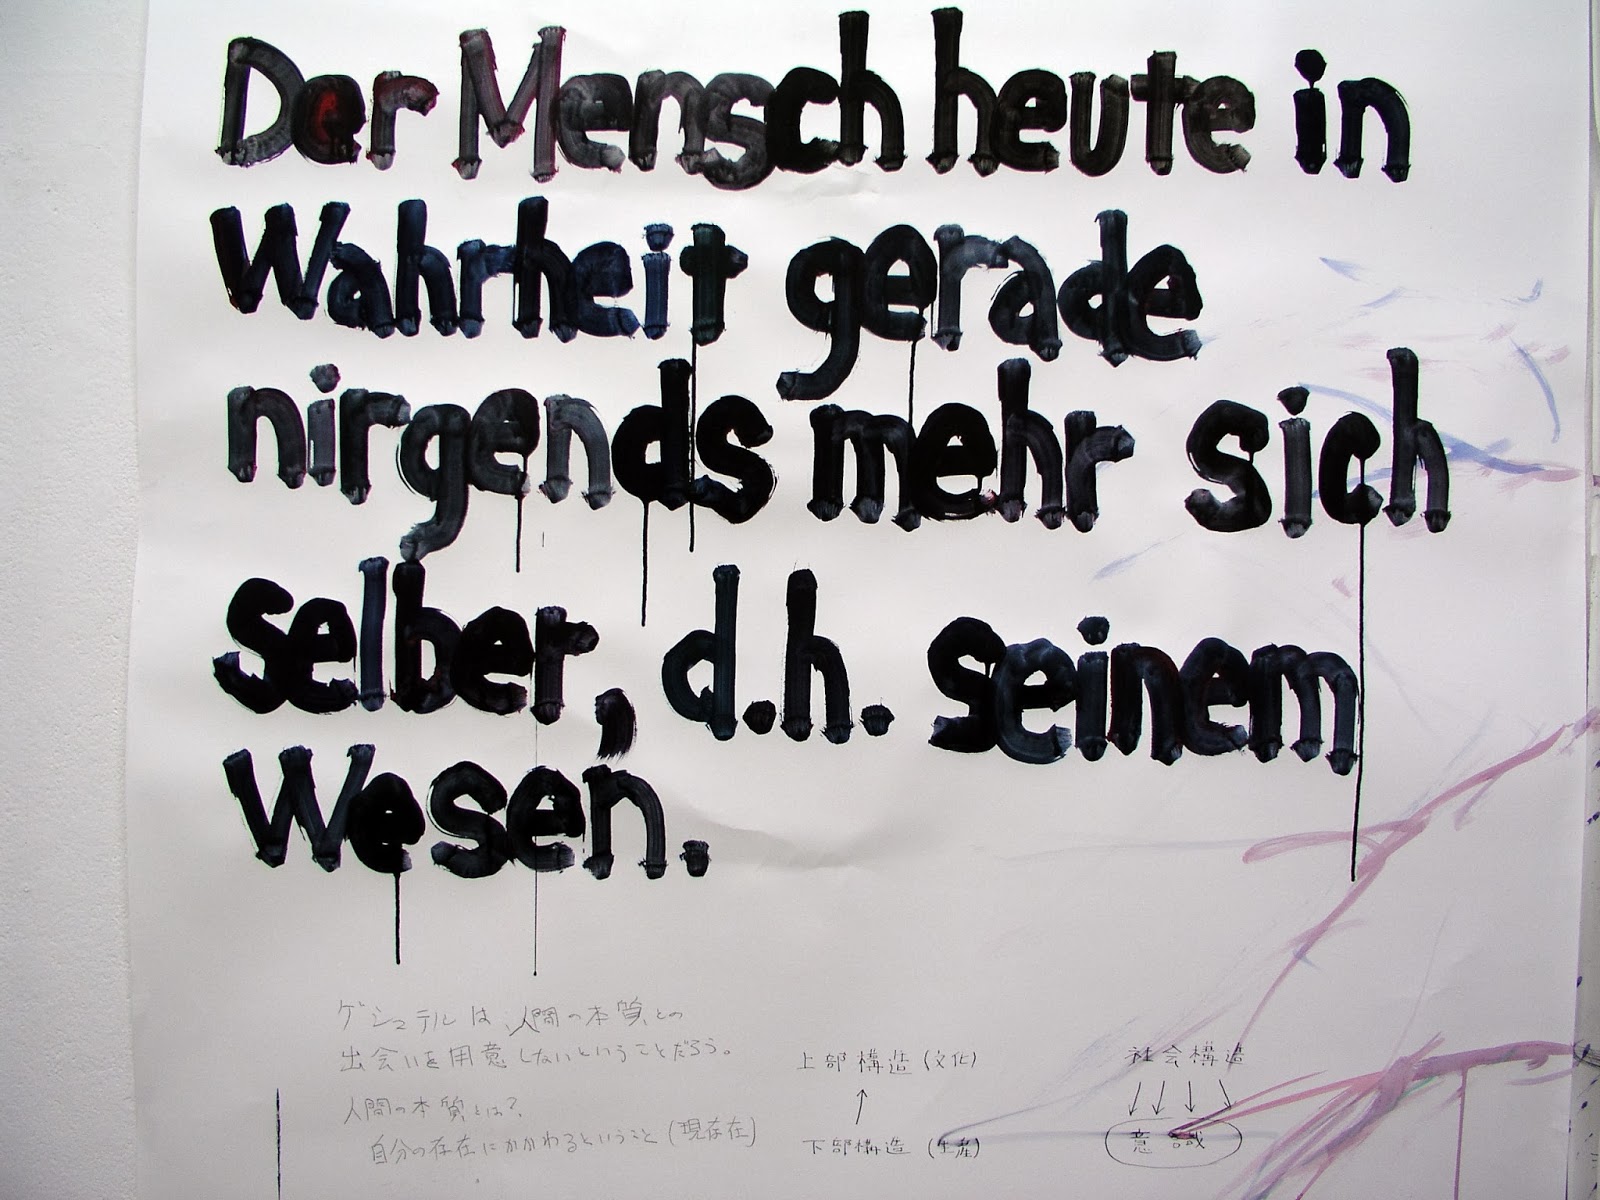 Der Mensch heute in
Wahrheit gerade
nirgends mehr sich
selber, d.h. seinem
Wesen.
ゲシュテルは、人間の本質との
出会いを用意しないということだろう。
人間の本質とは?
自分の存在にかかわるということ(現存在)
上部構造(文化)
↑
下部構造(生産)
社会構造
↓↓↓↓
意識